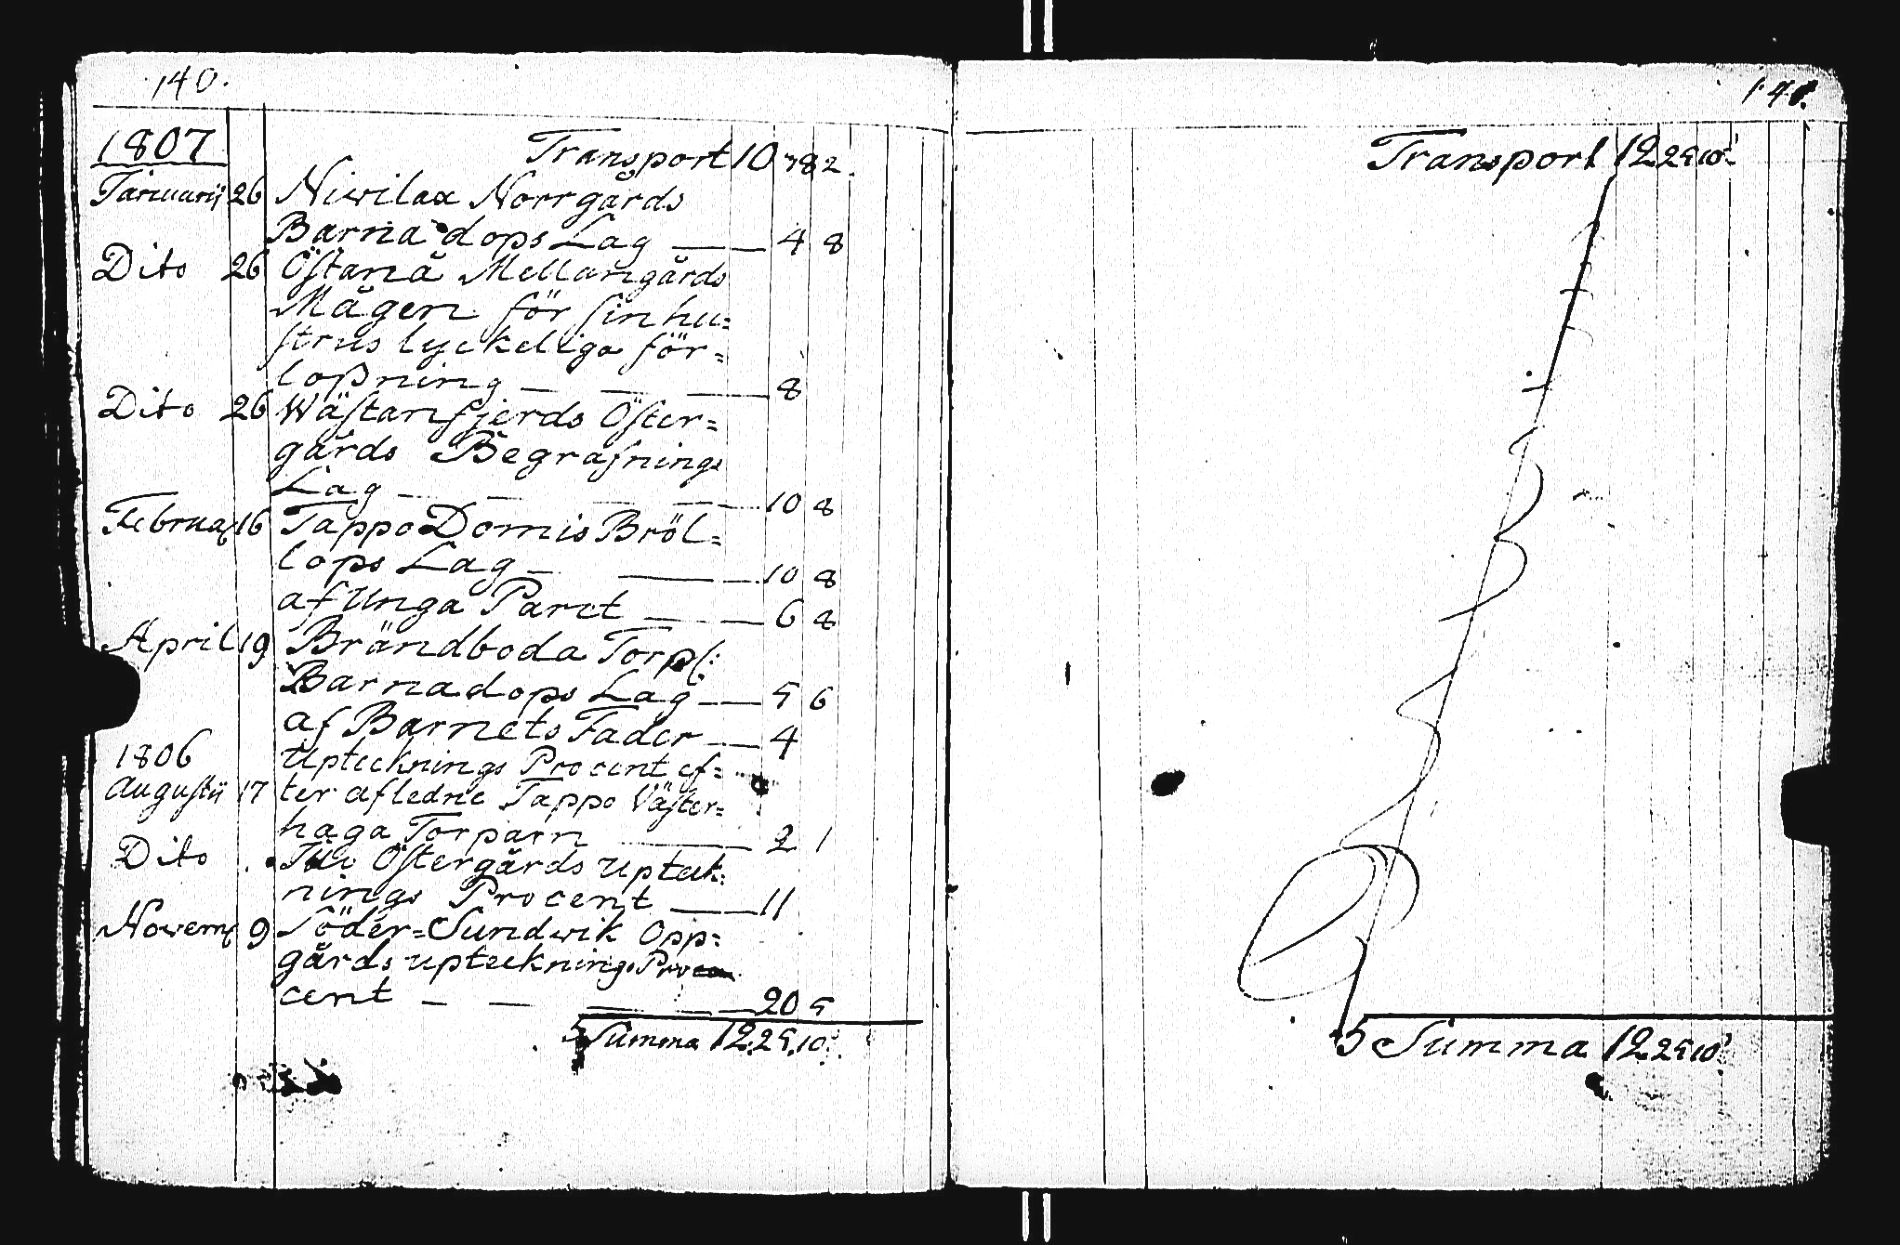 140.
1807
Transport 10 782.
Januarij 26 Niwilax Norrgårds
Barnadops Lag 4 8
Dito 26 Östanå Mellangårds
Mågen för sin hu=
strus lyckeliga för=
loßning 8
Dito 26 Wästanfjerds Öster=
gårds Begrafnings
Lag 10 8
Februa 16 Tappo Domis Bröl=
lops Lag 10 8
af Unga Paret 6 8
April 19 Brändboda Torp
Barnadops Lag 5 6
af Barnets Fader 4
1806 Uptecknings Procent ef=
Augustii 17 ter afledne Tappo Väster=
haga Torparn 2 1
Dito Östergårds upteck:
nings Procent 11
Novem 9 Söder=Sundwik Opp=
gårds uptecknings Pro
cent 20 5
Summa 12.25.10.
141.
Transport 12 25 10.
Summa 12 25 10.